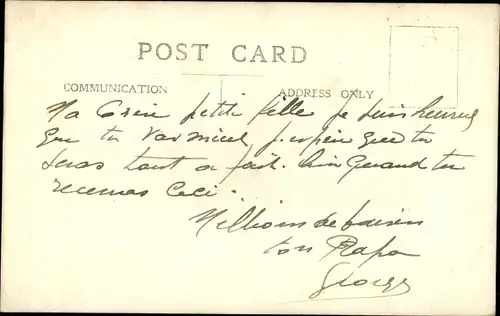 POST CARD
COMMUNICATION ADDRESS ONLY
Ma petite fille je suis heureux
que tu vas mieux j'espère que tu
seras tout a fait bien quand tu
recevras ceci.
Millions de baisers
ton Papa
Georges